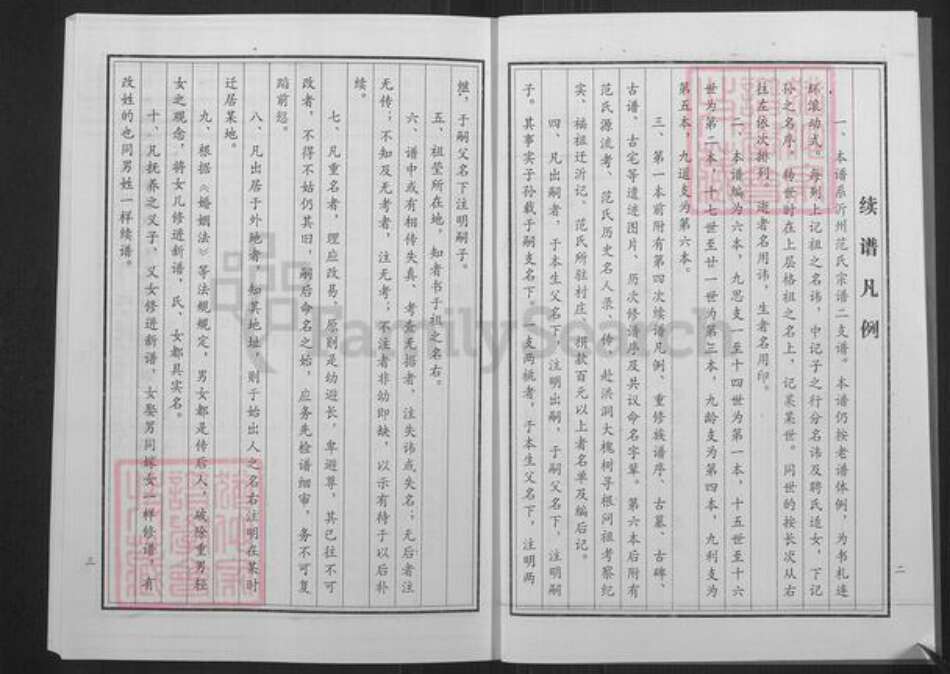 续谱凡例
一、本谱系沂州范氏宗谱二支谱。本谱仍按老谱体例，为书札连
环滚动式。每列上记祖之名讳，中记子之行分名讳及聘氏适女，下记
孙之名序。转世时在上层格祖之名上，记某某世。同世的按长次从右
往左依次排列，逝者名用讳，生者名用印。
二、本谱编为六本，九思支一至十四世为第一本，十五世至十六
世为第二本，十七世至廿一世为第三本，九龄支为第四本，九利支为
第五本，九道支为第六本。
三、第一本前附有第四次续谱凡例、重修族谱序、古墓、古碑、
古谱、古宅等遗迹图片、历次修谱序及共议命名字辈。第六本后附有
范氏源流考、范氏历史名人录、传、赴洪洞大槐树寻根问祖考察纪
实、福祖迁沂记、范氏所驻村庄、捐款百元以上者名单及编后记。
四、凡出嗣者，于本生父名下，注明出嗣，于嗣父名下，注明嗣
子。其事实子孙载于嗣支名下，一支两祧者，于本生父名下，注明两
继，于嗣父名下注明嗣子。
五、祖茔所在地，知者书于祖之名右。
六、谱中或有相传失真、考查无据者，注失讳或失名；无后者注
无传；不知及无考者，注无考；不注者非幼即缺，以示有待于以后补
续。
七、凡重名者，理应改易，原则是幼避长，卑避尊，其已往不可
改者，不得不姑仍其旧，嗣后命名之始，应务先检谱细审，务不可复
蹈前愆。
八、凡出居于外地者，知其地址，则于始出人之名右注明在某时
迁居某地。
九、根据《婚姻法》等法规规定，男女都是传后人，破除重男轻
女之观念，将女儿修进新谱，氏、女都具实名。
十、凡抚养之义子、义女修进新谱，女娶男同嫁女一样修谱，有
改姓的也同男姓一样续谱。
二
三
FamilySearch